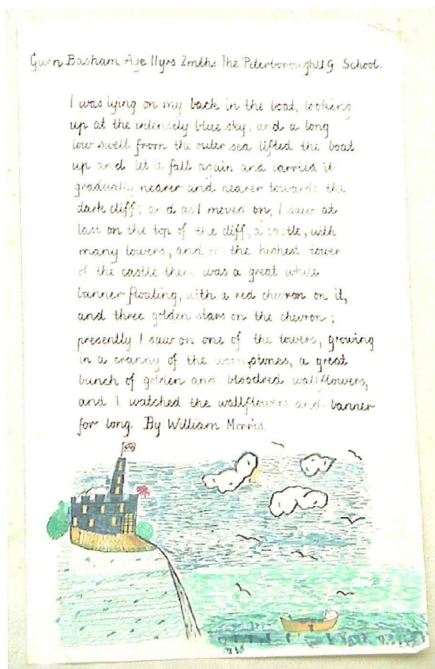 Gwen Basham Age 11yrs 2mths The Peterborough
School.
I was lying on my back in the boat, looking
up at the intensely blue sky, and a long
low swell from the outer sea lifted the boat
up and let it fall again and carried it
gradually nearer and nearer towards the
dark cliff; and as I moved on, I saw at
last on the top of the cliff, a castle, with
many towers, and on the highest tower
of the castle there was a great white
banner floating, with a red chevron on it,
and three golden stars on the chevron;
presently I saw on one of the towers, growing
in a cranny of the worn stones, a great
bunch of golden and bloodred wallflowers,
and I watched the wallflowers and banner
for long. By William Morris.